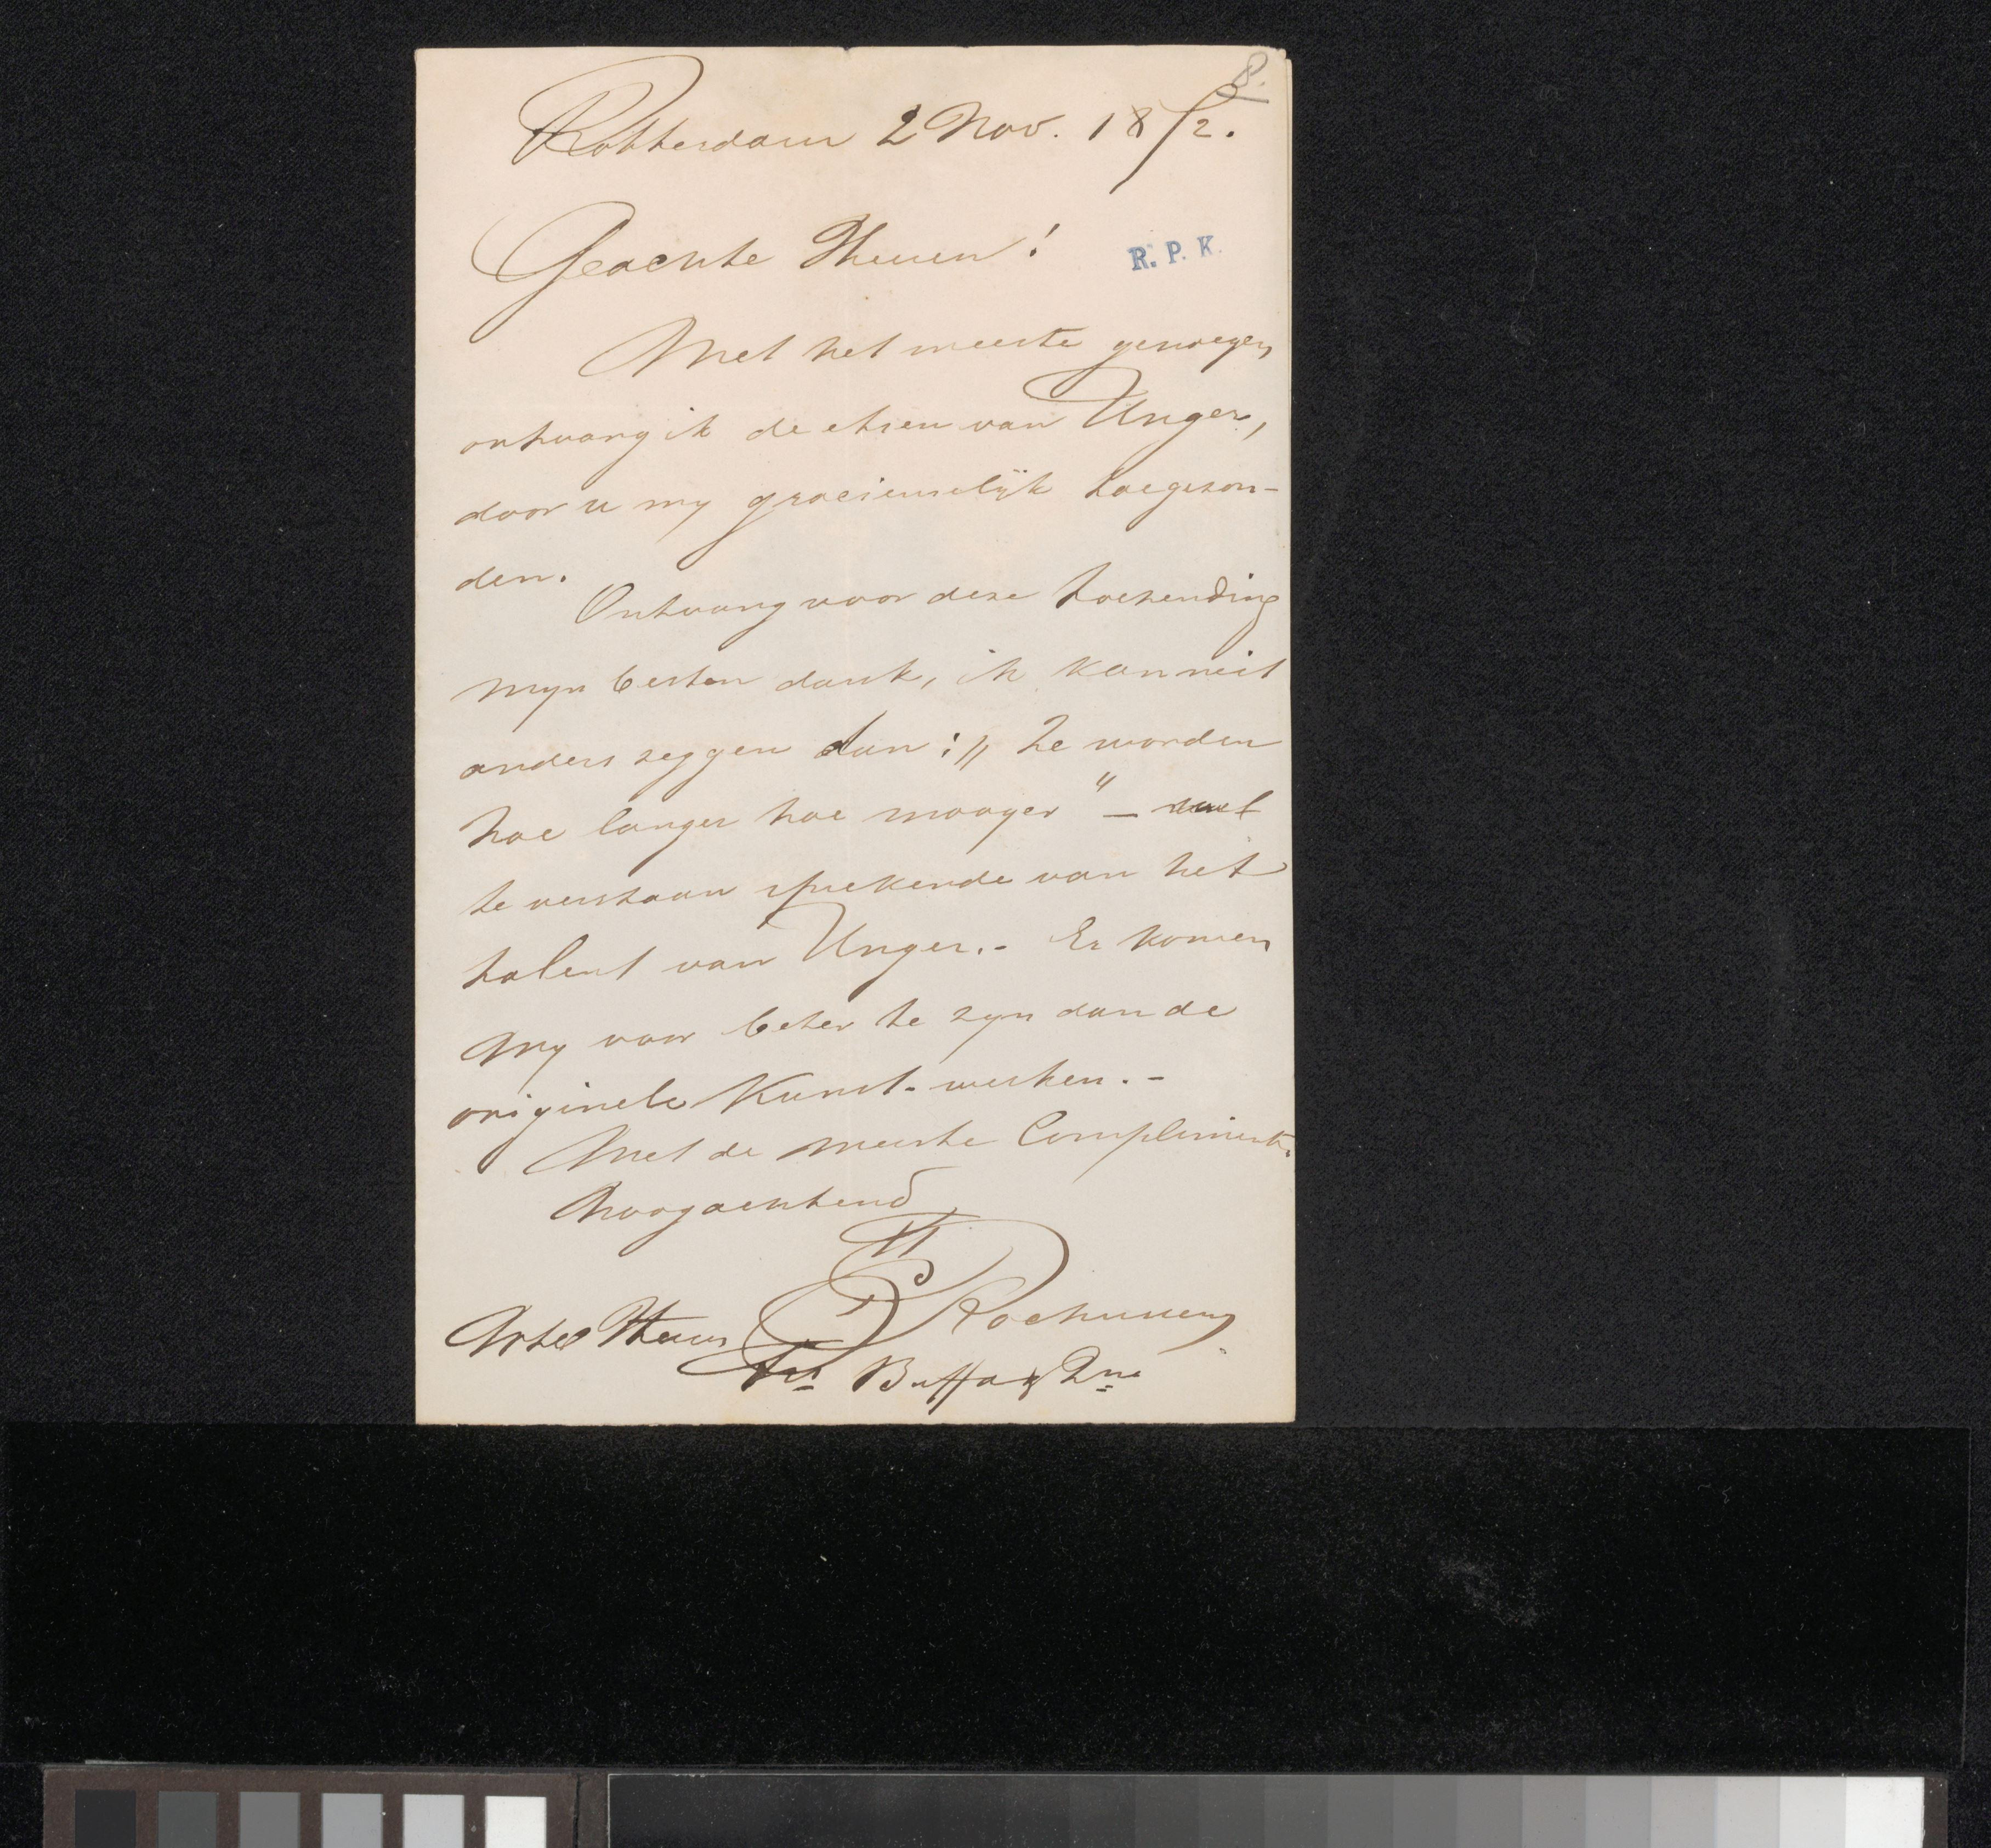 8.
Rotterdam 2 Nov. 1872.
Geachte Heeren!
R. P. K.
Met het meeste genoegen
ontvang ik de etsen van Unger,
door u my gracieuselijk toegezon-
den.
Ontvang voor deze toezending
myn besten dank, ik kan niet
anders zeggen dan: „ Ze worden
hoe langer hoe mooyer" — wel
te verstaan sprekende van het
talent van Unger. - Er komen
my voor beter te zyn dan de
originele Kunst-werken. -
Met de meeste Complimentn.
hoogachtend,
Rochussen
Heeren
Frs Buffa & Zne